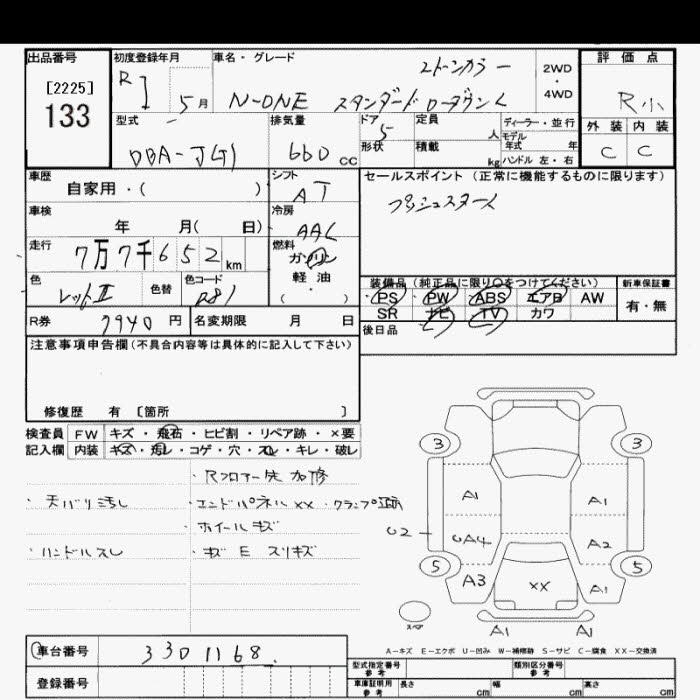 出品番号 初度登録年月 車名・グレード 2トーンカラー 2WD・4WD 評価点
[2225]
133
R1 5月 N-ONE スタンダード ローダウンL R小
型式 排気量 ドア 定員 ディーラー・並行 外装 内装
DBA-JG1 660cc 5 人 モデル年式 年 C C
形状 積載 kg ハンドル 左・右
車歴 シフト セールスポイント (正常に機能するものに限ります)
自家用・( ) AT プッシュスタート
車検 冷房
年 月( 日) AAC
走行 燃料
7万7千652km ガソリン
色 色替 色コード 軽油 装備品 (純正品に限り○をつけてください) 新車保証書
レッドII R81 ( ) PS PW ABS エアB AW 有・無
R券 7940円 名変期限 月 日 SR ナビ TV カワ
後日品
注意事項申告欄(不具合内容等は具体的に記入して下さい)
修復歴 有 [箇所 ]
検査員 FW キズ・飛石・ヒビ割・リペア跡・×要
記入欄 内装 キズ・汚レ・コゲ・穴・スレ・キレ・破レ
・Rフロアー先 加修
・天バリ汚し ・エンドパネルXX・クランプ跡
・ホイールキズ
・ハンドルスレ ・キズ E スリキズ
3 3
A1 A1
U2 UA4 A2
5 5
A3 XX A1
スペア
A1 A1
A-キズ E-エクボ U-凹み W-補修跡 S-サビ C-腐食 XX-交換済
車台番号 3301168
登録番号
型式指定番号 参考 類別区分番号 参考
車庫証明用 参考 長さ cm 幅 cm 高さ cm